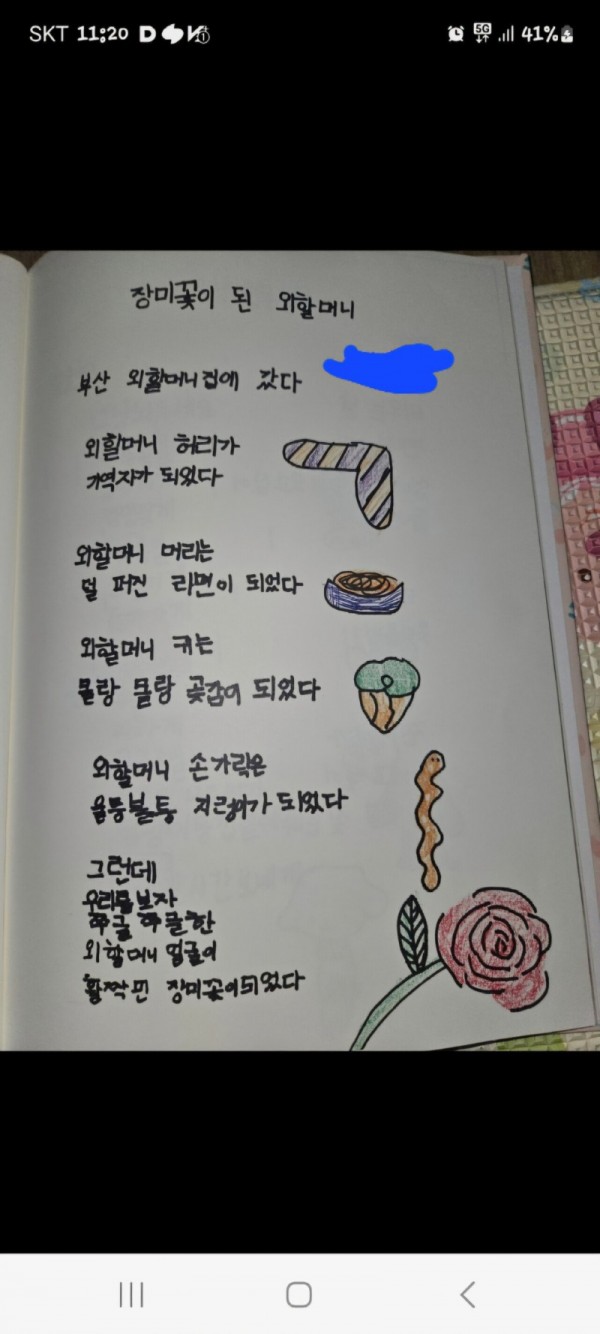 SKT 11:20
5G 41%
장미꽃이 된 외할머니
부산 외할머니집에 갔다
외할머니 허리가
기역자가 되었다
외할머니 머리는
덜 퍼진 라면이 되었다
외할머니 귀는
물랑 물랑 곶감이 되었다
외할머니 손가락은
울퉁불퉁 지렁이가 되었다
그런데
우리를보자
쭈글쭈글한
외할머니 얼굴이
활짝 핀 장미꽃이되었다